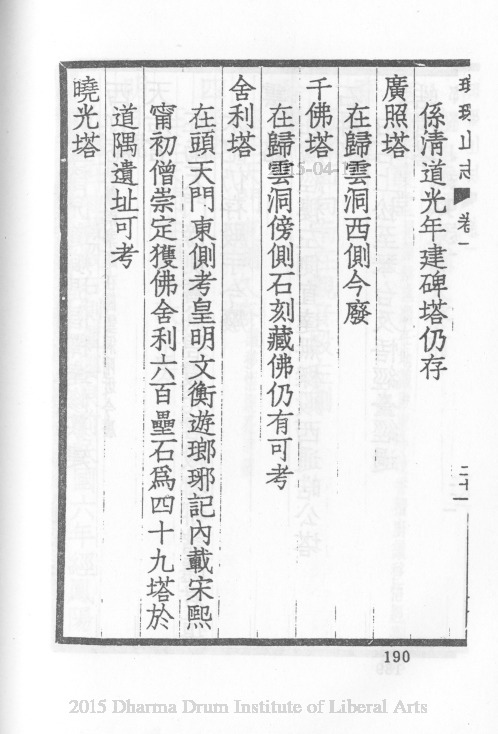 琅琊山志 卷一 二十一
係清道光年建碑塔仍存
廣照塔
在歸雲洞西側今廢
千佛塔
在歸雲洞傍側石刻藏佛仍有可考
舍利塔
在頭天門東側考皇明文衡遊瑯琊記內載宋熙
甯初僧崇定獲佛舍利六百壘石爲四十九塔於
道隅遺址可考
曉光塔
190
2015 Dharma Drum Institute of Liberal Arts